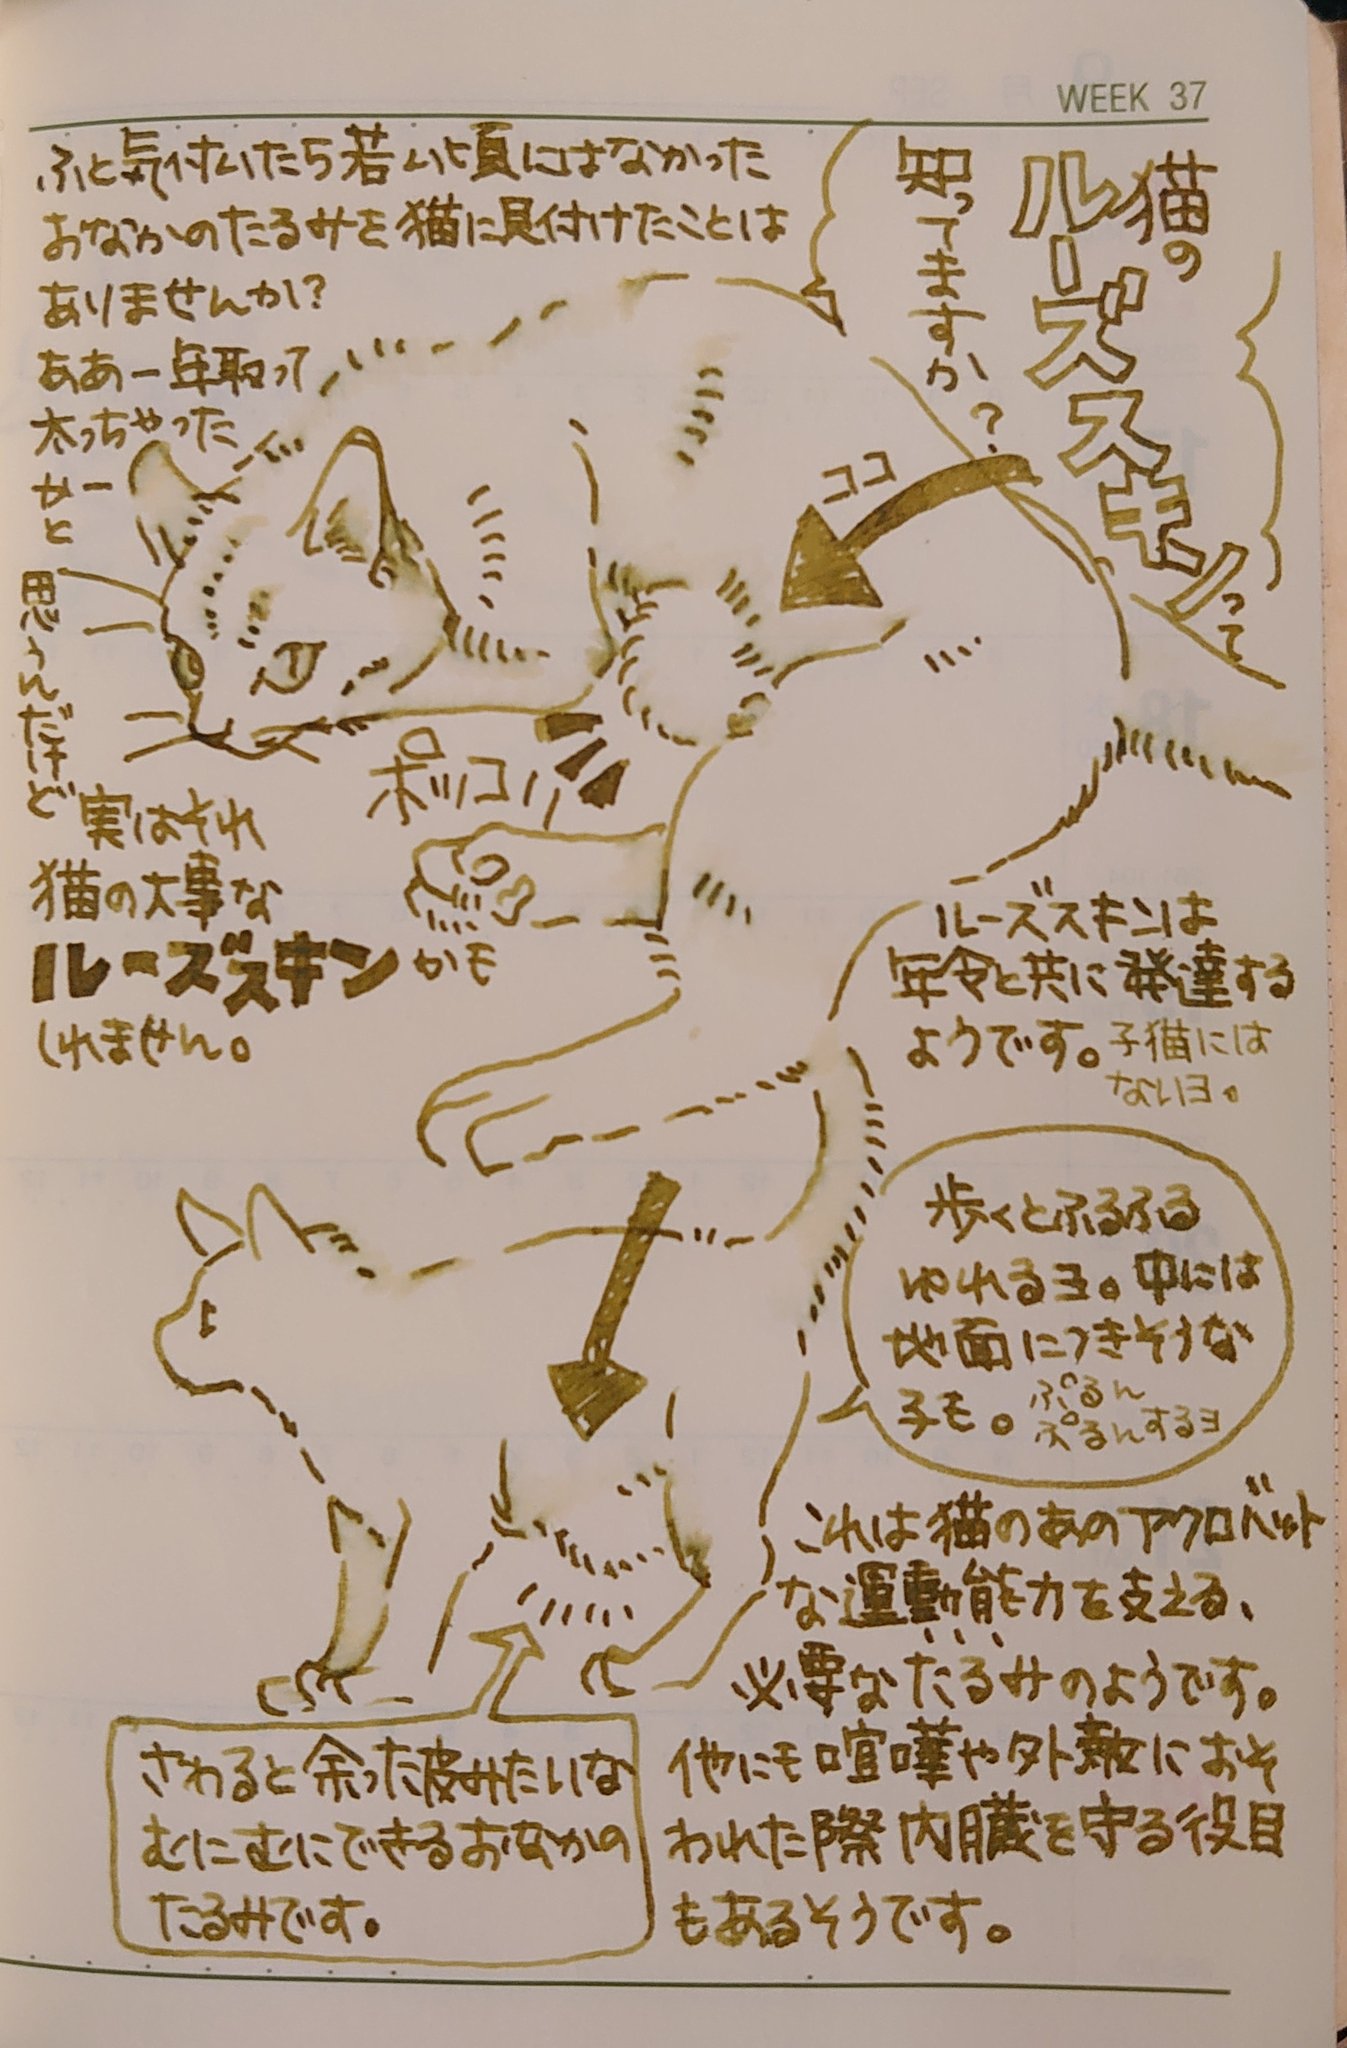 WEEK 37
猫の
ルーズスキンって
知ってますか?
ふと気付いたら若い頃にはなかった
おなかのたるみを猫に見付けたことは
ありませんか?
ああー年取って
太っちゃった
かーと
思うんだけど
実はそれ
猫の大事な
ルーズスキンかも
しれません。
ココ
ポッコリ
ルーズスキンは
年令と共に発達する
ようです。子猫には
ないヨ。
歩くとふるふる
ゆれるヨ。中には
地面につきそうな
子も。ぷるん
ぷるんするヨ
これは猫のあのアクロバット
な運動能力を支える、
必要なたるみのようです。
他にも喧嘩や外敵におそ
われた際内臓を守る役目
もあるそうです。
さわると余った皮みたいな
むにむにできるおなかの
たるみです。